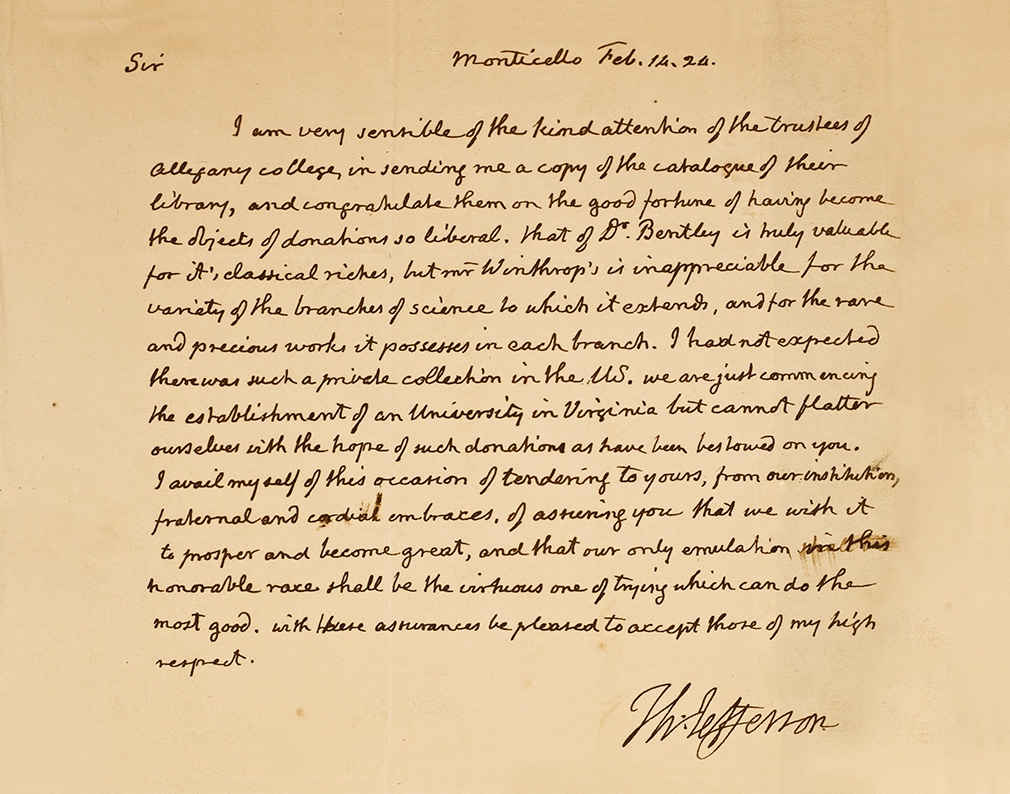 Sir Monticello Feb. 14. 24.
I am very sensible of the kind attention of the trustees of
Allegany college, in sending me a copy of the catalogue of their
library, and congratulate them on the good fortune of having become
the objects of donations so liberal. that of Dr. Bentley is truly valuable
for it's classical riches, but mr Winthrop's is inappreciable for the
variety of the branches of science to which it extends, and for the rare
and precious works it possesses in each branch. I had not expected
there was such a private collection in the US. we are just commencing
the establishment of an University in Virginia but cannot flatter
ourselves with the hope of such donations as have been bestowed on you.
I avail myself of this occasion of tendering to yours, from our institution,
fraternal and cordial embraces, of assuring you that we wish it
to prosper and become great, and that our only emulation in this
honorable race shall be the virtuous one of trying which can do the
most good. with these assurances be pleased to accept those of my high
respect.
Th: Jefferson